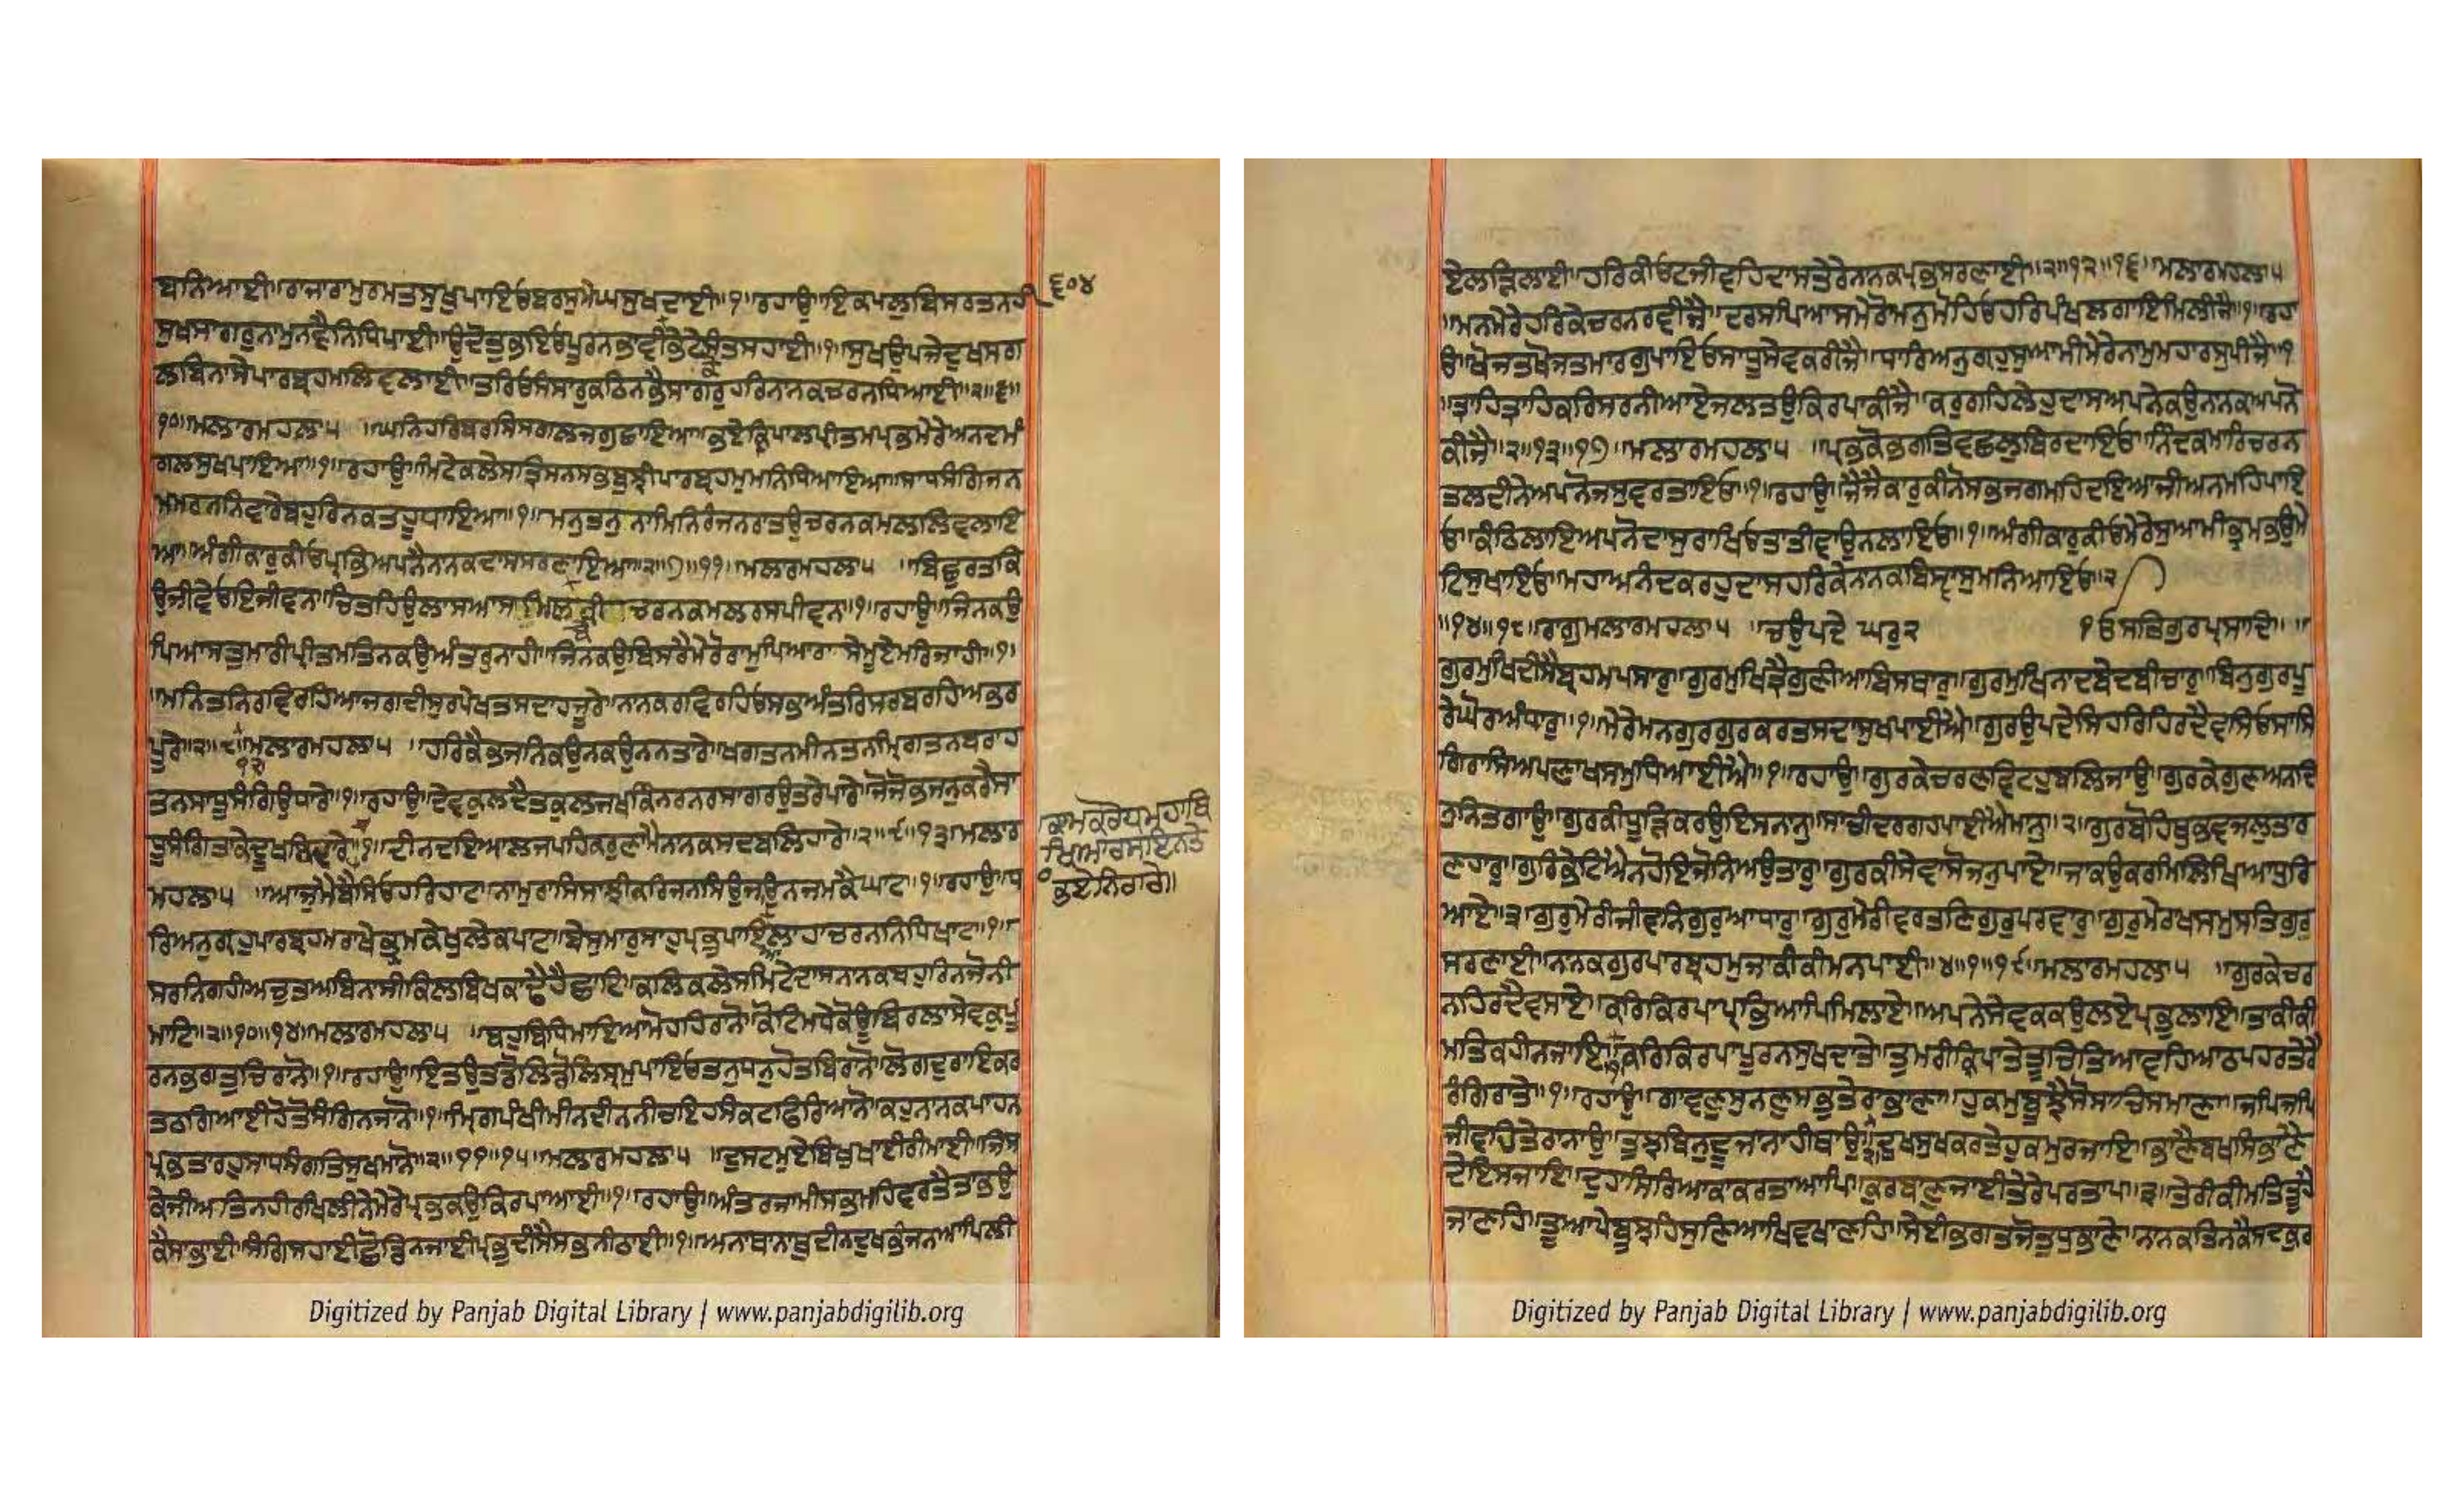 ਬਨਿਆਈ॥ਰਾਜਾਰਾਮੁਰਮਤਸੁਖੁਪਾਇਓਬਰਸੁਮੇਘਸੁਖਦਾਈ॥੧॥ਰਹਾਉ॥ਇਕਪਲੁਬਿਸਰਤਨਹੀ
੬੦੪
ਸੁਖਸਾਗਰੁਨਾਮੁਨਵੈਨਿਧਿਪਾਈ॥ਉਦੌਤੁਭਇਓਪੂਰਨਭਾਵੀਕੋਭੇਟੇਸੰਤਸਹਾਈ॥੧॥ਸੁਖਉਪਜੇਦੁਖਸਗ
ਲਬਿਨਾਸੇਪਾਰਬ੍ਰਹਮਲਿਵਲਾਈ॥ਤਰਿਓਸੰਸਾਰੁਕਠਿਨਭੈਸਾਗਰੁਹਰਿਨਾਨਕਚਰਨਧਿਆਈ॥੨॥੬॥
੧੦॥ਮਲਾਰਮਹਲਾ੫ ॥ਘਨਿਹਰਬਰਸਿਸਗਲਜਗੁਛਾਇਆ॥ਭਏਕ੍ਰਿਪਾਲਪ੍ਰੀਤਮਪ੍ਰਭਮੇਰੇਅਨਦਮੰ
ਗਲਸੁਖਪਾਇਆ॥੧॥ਰਹਾਉ॥ਮਿਟੇਕਲੇਸਤ੍ਰਿਸਨਸਭਬੁਝੀਪਾਰਬ੍ਰਹਮੁਮਨਿਧਿਆਇਆ॥ਸਾਧਸੰਗਿਜਨ
ਮਮਰਨਨਿਵਾਰੇਬਹੁਰਿਨਕਤਹੂਧਾਇਆ॥੧॥ਮਨੁਤਨੁਨਾਮਿਨਿਰੰਜਨਰਾਤਉਚਰਨਕਮਲਲਿਵਲਾਇ
ਆ॥ਅੰਗੀਕਾਰੁਕੀਓਪ੍ਰਭਿਅਪਨੈਨਾਨਕਦਾਸਸਰਣਾਇਆ॥੨॥੭॥੧੧॥ਮਲਾਰਮਹਲਾ੫ ॥ਬਿਛੁਰਤਕਿ
ਉਜੀਵੇਓਇਜੀਵਨ॥ਚਿਤਹਿਉਲਾਸਆਸਮਿਲਬੇਕੀਚਰਨਕਮਲਰਸਪੀਵਨ॥੧॥ਰਹਾਉ॥ਜਿਨਕਉ
ਪਿਆਸਤੁਮਾਰੀਪ੍ਰੀਤਮਤਿਨਕਉਅੰਤਰੁਨਾਹੀ॥ਜਿਨਕਉਬਿਸਰੈਮੇਰੋਰਾਮੁਪਿਆਰਾਸੇਮੂਏਮਰਿਜਾਹੀ॥੧॥
॥ਮਨਿਤਨਿਰਵਿਰਹਿਆਜਗਦੀਸੁਰਪੇਖਤਸਦਾਹਜੂਰੇ॥ਨਾਨਕਰਵਿਰਹਿਓਸਭਅੰਤਰਿਸਰਬਰਹਿਆਭਰ
ਪੂਰੇ॥੨॥੮॥੧੨॥ਮਲਾਰਮਹਲਾ੫ ॥ਹਰਿਕੈਭਜਨਿਕਉਨਕਉਨਨਤਾਰੇ॥ਖਗਤਨਮੀਨਤਨਮ੍ਰਿਗਤਨਬਰਾਹ
ਤਨਸਾਧੂਸੰਗਿਉਧਾਰੇ॥੧॥ਰਹਾਉ॥ਦੇਵਕੁਲਦੈਤਕੁਲਜਖਕਿੰਨਰਨਰਸਾਗਰਉਤਰੇਪਾਰੇ॥ਜੋਜੋਭਜਨੁਕਰੈਸਾ
ਧੂਸੰਗਿਤਾਕੇਦੂਖਬਿਦਾਰੇ॥੧॥ਦੀਨਦਇਆਲਜਪਹਿਕਰੁਣਾਮੈਨਾਨਕਸਦਬਲਿਹਾਰੇ॥੨॥੯॥੧੩॥ਮਲਾਰ
ਕਾਮਕਰੋਧਮਹਾਬਿ
ਖਿਆਰਸਇਨਤੇ
ਭਏਨਿਰਾਰੇ॥
ਮਹਲਾ੫ ॥ਆਜੁਮੈਬੈਸਿਓਹਰਿਹਾਟ॥ਨਾਮੁਰਾਸਿਸਾਝੀਕਰਿਜਨਸਿਉਜਾਂਉਨਜਮਕੈਘਾਟ॥੧॥ਰਹਾਉ॥ਧ
ਰਿਅਨੁਗ੍ਰਹੁਪਾਰਬ੍ਰਹਮਰਾਖੇਭ੍ਰਮਕੇਖੁਲੇਕਪਾਟ॥ਬੇਸੁਮਾਰਸਾਹੁਪ੍ਰਭੁਪਾਇਆਲਾਹਾਚਰਨਨਿਧਿਖਾਟ॥੧॥
ਸਰਨਿਗਹੀਅਚੁਤਅਬਿਨਾਸੀਕਿਲਬਿਖਕਾਢੈਹੈਛਾਟਿ॥ਕਲਿਕਲੇਸਮਿਟੇਦਾਸਨਾਨਕਬਹੁਰਿਨਜੋਨੀ
ਮਾਟ॥੨॥੧੦॥੧੪॥ਮਲਾਰਮਹਲਾ੫ ॥ਬਹੁਬਿਧਿਮਾਇਆਮੋਹਹਿਰਾਨੋ॥ਕੋਟਿਮਧੇਕੋਊਬਿਰਲਾਸੇਵਕੁਪੂ
ਰਨਭਗਤੁਚਿਰਾਨੋ॥੧॥ਰਹਾਉ॥ਇਤਉਤਡੋਲਿਡੋਲਿਸ੍ਰਮੁਪਾਇਓਤਨੁਧਨੁਹੋਤਬਿਰਾਨੋ॥ਲੋਗਦੁਰਾਇਕਰ
ਤਠਗਿਆਈਹੋਤੌਸੰਗਿਨਜਾਨੋ॥੧॥ਮ੍ਰਿਗਪੰਖੀਮੀਨਦੀਨਨੀਚਇਹਸੰਕਟਫਿਰਿਆਨੋ॥ਕਹੁਨਾਨਕਪਾਹਨ
ਪ੍ਰਭਤਾਰਹੁਸਾਧਸੰਗਤਿਸੁਖਮਾਨੋ॥੨॥੧੧॥੧੫॥ਮਲਾਰਮਹਲਾ੫ ॥ਦੁਸਟਮੁਏਬਿਖੁਖਾਈਰੀਮਾਈ॥ਜਿਸ
ਕੇਜੀਅਤਿਨਹੀਰਖਿਲੀਨੇਮੇਰੇਪ੍ਰਭਕਉਕਿਰਪਾਆਈ॥੧॥ਰਹਾਉ॥ਅੰਤਰਜਾਮੀਸਭਮਹਿਵਰਤੈਤਾਂਭਉ
ਕੈਸਾਭਾਈ॥ਸੰਗਿਸਹਾਈਛੋਡਿਨਜਾਈਪ੍ਰਭੁਦੀਸੈਸਭਨੀਠਾਈ॥੧॥ਅਨਾਥਾਨਾਥੁਦੀਨਦੁਖਭੰਜਨਆਪਿਲੀ
ਏਲੜਿਲਾਈ॥ਹਰਿਕੀਓਟਜੀਵਹਿਦਾਸਤੇਰੇਨਾਨਕਪ੍ਰਭਸਰਣਾਈ॥੨॥੧੨॥੧੬॥ਮਲਾਰਮਹਲਾ੫
॥ਮਨਮੇਰੇਹਰਿਕੇਚਰਨਰਵੀਜੈ॥ਦਰਸਪਿਆਸਮੇਰੋਮਨੁਮੋਹਿਓਹਰਿਪੰਖਲਗਾਇਮਿਲੀਜੈ॥੧॥ਰਹਾ
ਉ॥ਖੋਜਤਖੋਜਤਮਾਰਗੁਪਾਇਓਸਾਧੂਸੇਵਕਰੀਜੈ॥ਧਾਰਿਅਨੁਗ੍ਰਹੁਸੁਆਮੀਮੇਰੇਨਾਮੁਮਹਾਰਸੁਪੀਜੈ॥੧
॥ਤ੍ਰਾਹਿਤ੍ਰਾਹਿਕਰਿਸਰਨੀਆਏਜਲਤਉਕਿਰਪਾਕੀਜੈ॥ਕਰੁਗਹਿਲੇਹੁਦਾਸਅਪਨੇਕਉਨਾਨਕਅਪਨੋ
ਕੀਜੈ॥੨॥੧੩॥੧੭॥ਮਲਾਰਮਹਲਾ੫ ॥ਪ੍ਰਭਕੋਭਗਤਿਵਛਲੁਬਿਰਦਾਇਓ॥ਨਿੰਦਕਮਾਰਿਚਰਨ
ਤਲਦੀਨੇਅਪਨੋਜਸੁਵਰਤਾਇਓ॥੧॥ਰਹਾਉ॥ਜੈਜੈਕਾਰੁਕੀਨੋਸਭਜਗਮਹਿਦਇਆਜੀਅਨਮਹਿਪਾਇ
ਓ॥ਕੰਠਿਲਾਇਅਪਨੋਦਾਸੁਰਾਖਿਓਤਾਤੀਵਾਉਨਲਾਇਓ॥੧॥ਅੰਗੀਕਾਰੁਕੀਓਮੇਰੇਸੁਆਮੀਭ੍ਰਮਭਉਮੇ
ਟਿਸੁਖਾਇਓ॥ਮਹਾਅਨੰਦਕਰਹੁਦਾਸਹਰਿਕੇਨਾਨਕਬਿਸ੍ਵਾਸੁਮਨਿਆਇਓ॥੨
॥੧੪॥੧੮॥ਰਾਗੁਮਲਾਰਮਹਲਾ੫ ॥ਚਉਪਦੇ ਘਰੁ੨ ੧ਓਸਤਿਗੁਰਪ੍ਰਸਾਦਿ॥ ॥
ਗੁਰਮੁਖਿਦੀਸੈਬ੍ਰਹਮਪਸਾਰੁ॥ਗੁਰਮੁਖਿਤ੍ਰੈਗੁਣੀਆਬਿਸਥਾਰੁ॥ਗੁਰਮੁਖਿਨਾਦਬੇਦਬੀਚਾਰੁ॥ਬਿਨੁਗੁਰਪੂ
ਰੇਘੋਰਅੰਧਾਰੁ॥੧॥ਮੇਰੇਮਨਗੁਰੁਗੁਰੁਕਰਤਸਦਾਸੁਖਪਾਈਐ॥ਗੁਰਉਪਦੇਸਿਹਰਿਹਿਰਦੈਵਸਿਓਸਾਸਿ
ਗਿਰਾਸਿਅਪਣਾਖਸਮੁਧਿਆਈਐ॥੧॥ਰਹਾਉ॥ਗੁਰਕੇਚਰਣਵਿਟਹੁਬਲਿਜਾਉ॥ਗੁਰਕੇਗੁਣਅਨਦਿ
ਨੁਨਿਤਗਾਉ॥ਗੁਰਕੀਧੂੜਿਕਰਉਇਸਨਾਨੁ॥ਸਾਚੀਦਰਗਹਪਾਈਐਮਾਨੁ॥੨॥ਗੁਰੁਬੋਹਿਥੁਭਵਜਲਤਾਰ
ਣਹਾਰੁ॥ਗੁਰਿਭੇਟਿਐਨਹੋਇਜੋਨਿਅਉਤਾਰੁ॥ਗੁਰਕੀਸੇਵਾਸੋਜਨੁਪਾਏ॥ਜਾਕਉਕਰਮਿਲਿਖਿਆਧੁਰਿ
ਆਏ॥੩॥ਗੁਰੁਮੇਰੀਜੀਵਨਿਗੁਰੁਆਧਾਰੁ॥ਗੁਰੁਮੇਰੀਵਰਤਣਿਗੁਰੁਪਰਵਾਰੁ॥ਗੁਰੁਮੇਰਾਖਸਮੁਸਤਿਗੁਰ
ਸਰਣਾਈ॥ਨਾਨਕਗੁਰੁਪਾਰਬ੍ਰਹਮੁਜਾਕੀਕੀਮਨਪਾਈ॥੪॥੧॥੧੯॥ਮਲਾਰਮਹਲਾ੫ ॥ਗੁਰਕੇਚਰ
ਨਹਿਰਦੈਵਸਾਏ॥ਕਰਿਕਿਰਪਾਪ੍ਰਭਿਆਪਿਮਿਲਾਏ॥ਅਪਨੇਸੇਵਕਕਉਲਏਪ੍ਰਭੁਲਾਇ॥ਤਾਕੀਕੀ
ਮਤਿਕਹੀਨਜਾਇ॥੧॥ਕਰਿਕਿਰਪਾਪੂਰਨਸੁਖਦਾਤੇ॥ਤੁਮਰੀਕ੍ਰਿਪਾਤੇਤੂਚਿਤਿਆਵਹਿਆਠਪਹਰਤੇਰੈ
ਰੰਗਿਰਾਤੇ॥੧॥ਰਹਾਉ॥ਗਾਵਣੁਸੁਨਣੁਸਭੁਤੇਰਾਭਾਣਾ॥ਹੁਕਮੁਬੂਝੈਸੋਸਾਚਿਸਮਾਣਾ॥ਜਪਿਜਪਿ
ਜੀਵਹਿਤੇਰਾਨਾਉ॥ਤੁਝਬਿਨੁਦੂਜਾਨਾਹੀਥਾਉ॥੨॥ਦੁਖਸੁਖਕਰਤੇਹੁਕਮੁਰਜਾਇ॥ਭਾਣੈਬਖਸਿਭਾਣੈ
ਦੇਇਸਜਾਇ॥ਦੁਹਾਂਸਿਰਿਆਂਕਾਕਰਤਾਆਪਿ॥ਕੁਰਬਾਣੁਜਾਈਤੇਰੇਪਰਤਾਪ॥੩॥ਤੇਰੀਕੀਮਤਿਤੂਹੈ
ਜਾਣਹਿ॥ਤੂਆਪੇਬੂਝਹਿਸੁਣਿਆਖਿਵਖਾਣਹਿ॥ਸੇਈਭਗਤਜੋਤੁਧੁਭਾਣੇ॥ਨਾਨਕਤਿਨਕੈਸਦਕੁਰ
Digitized by Panjab Digital Library | www.panjabdigilib.org
Digitized by Panjab Digital Library | www.panjabdigilib.org